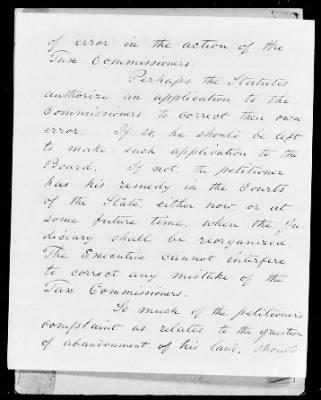 of error in the action of the
Tax Commissioners.
Perhaps the Statutes
authorize an application to the
Commissioners to correct their own
error. If so, he should be left
to make such application to the
Board. If not, the petitioner
has his remedy in the Courts
of the State, either now, or at
some future time, when the Ju
diciary shall be reorganized.
The Executive cannot interfere
to correct any mistake of the
Tax Commissioners.
So much of the petitioner's
complaint as relates to the question
of abandonment of his land, should